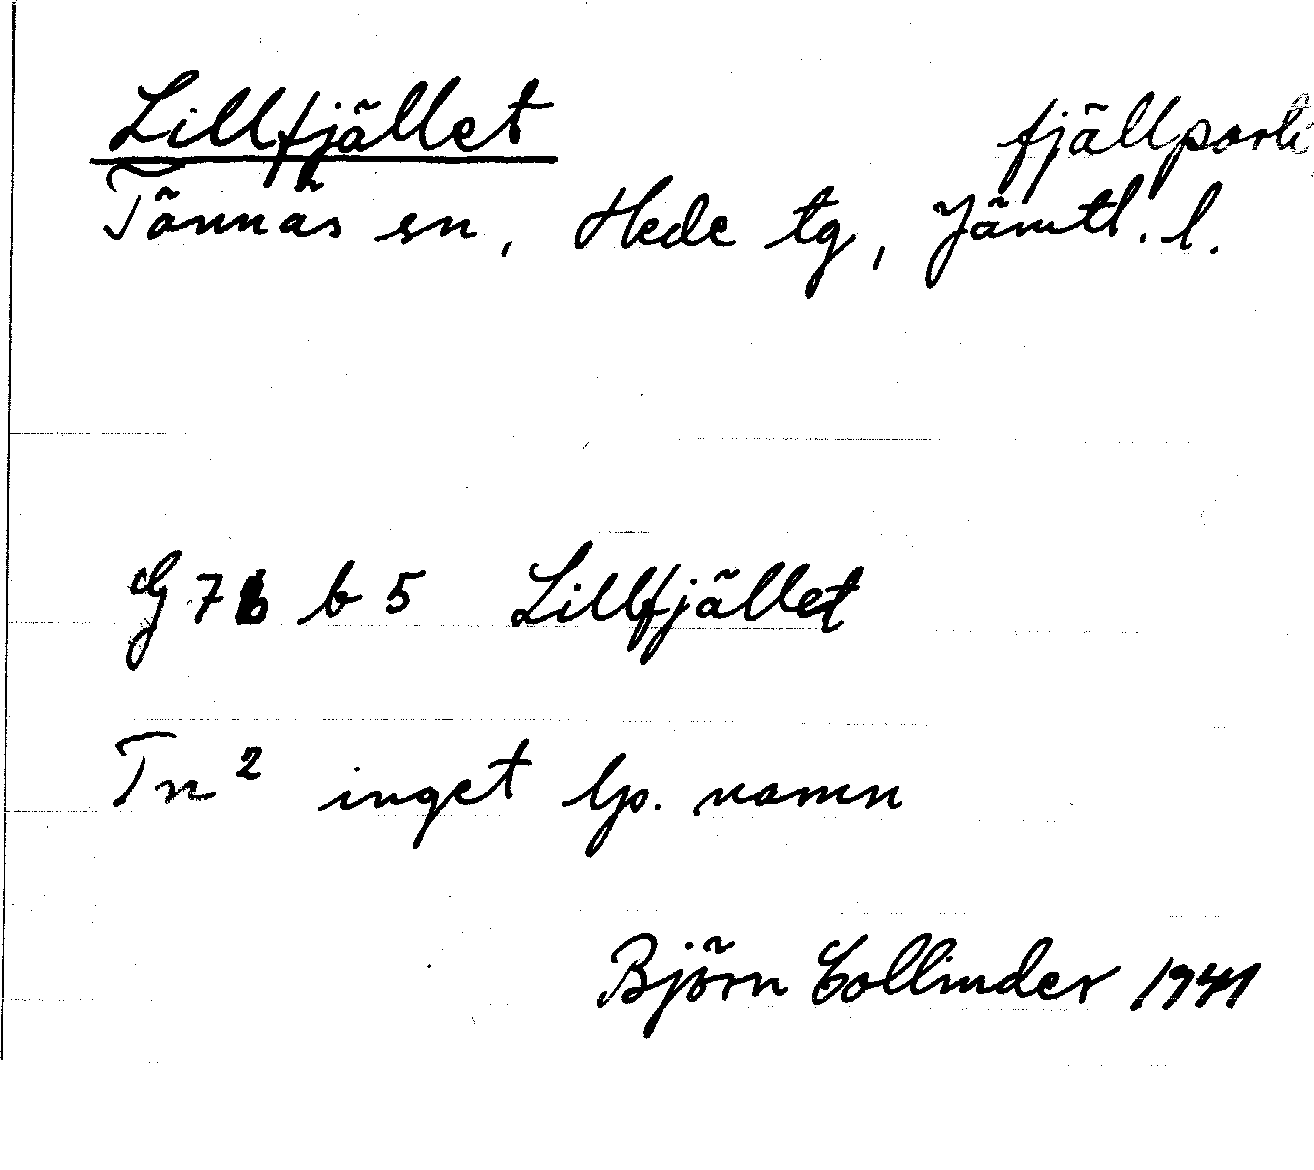 Lillfjället fjällparti
Tännäs sn, Hede tg, Jämtl. l.
G 76 b 5 Lillfjället
Tn² inget lp. namn
Björn Collinder 1941